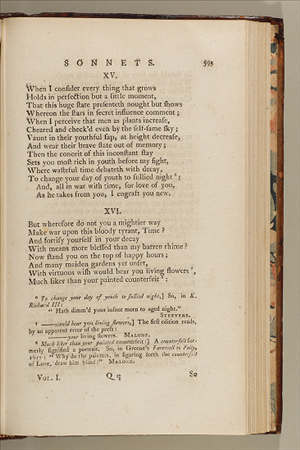 SONNETS. 593
XV.
When I consider every thing that grows
Holds in perfection but a little moment,
That this huge state presenteth nought but shows
Whereon the stars in secret influence comment;
When I perceive that men as plants increase,
Cheared and check'd even by the self-same sky;
Vaunt in their youthful sap, at height decrease,
And wear their brave state out of memory;
Then the conceit of this inconstant stay
Sets you most rich in youth before my sight,
Where wasteful time debateth with decay,
To change your day of youth to sullied night ⁶;
And, all in war with time, for love of you,
As he takes from you, I engraft you new.
XVI.
But wherefore do not you a mightier way
Make war upon this bloody tyrant, Time?
And fortify yourself in your decay
With means more blessed than my barren rhime?
Now stand you on the top of happy hours;
And many maiden gardens yet unset,
With virtuous wish would bear you living flowers ⁷,
Much liker than your painted counterfeit ⁸:
⁶ To change your day of youth to sullied night,] So, in K.
Richard III:
"Hath dimm'd your infant morn to aged night."
STEEVENS.
⁷ —would bear you living flowers,] The first edition reads,
by an apparent error of the press:
—your living flowers. MALONE.
⁸ Much liker than your painted counterfeit:] A counterfeit for-
merly signified a portrait. So, in Greene's Farewell to Folly,
"Why do the painters, in figuring forth the counterfeit
of Love, draw him blind?" MALONE.
VOL. I. Q q So